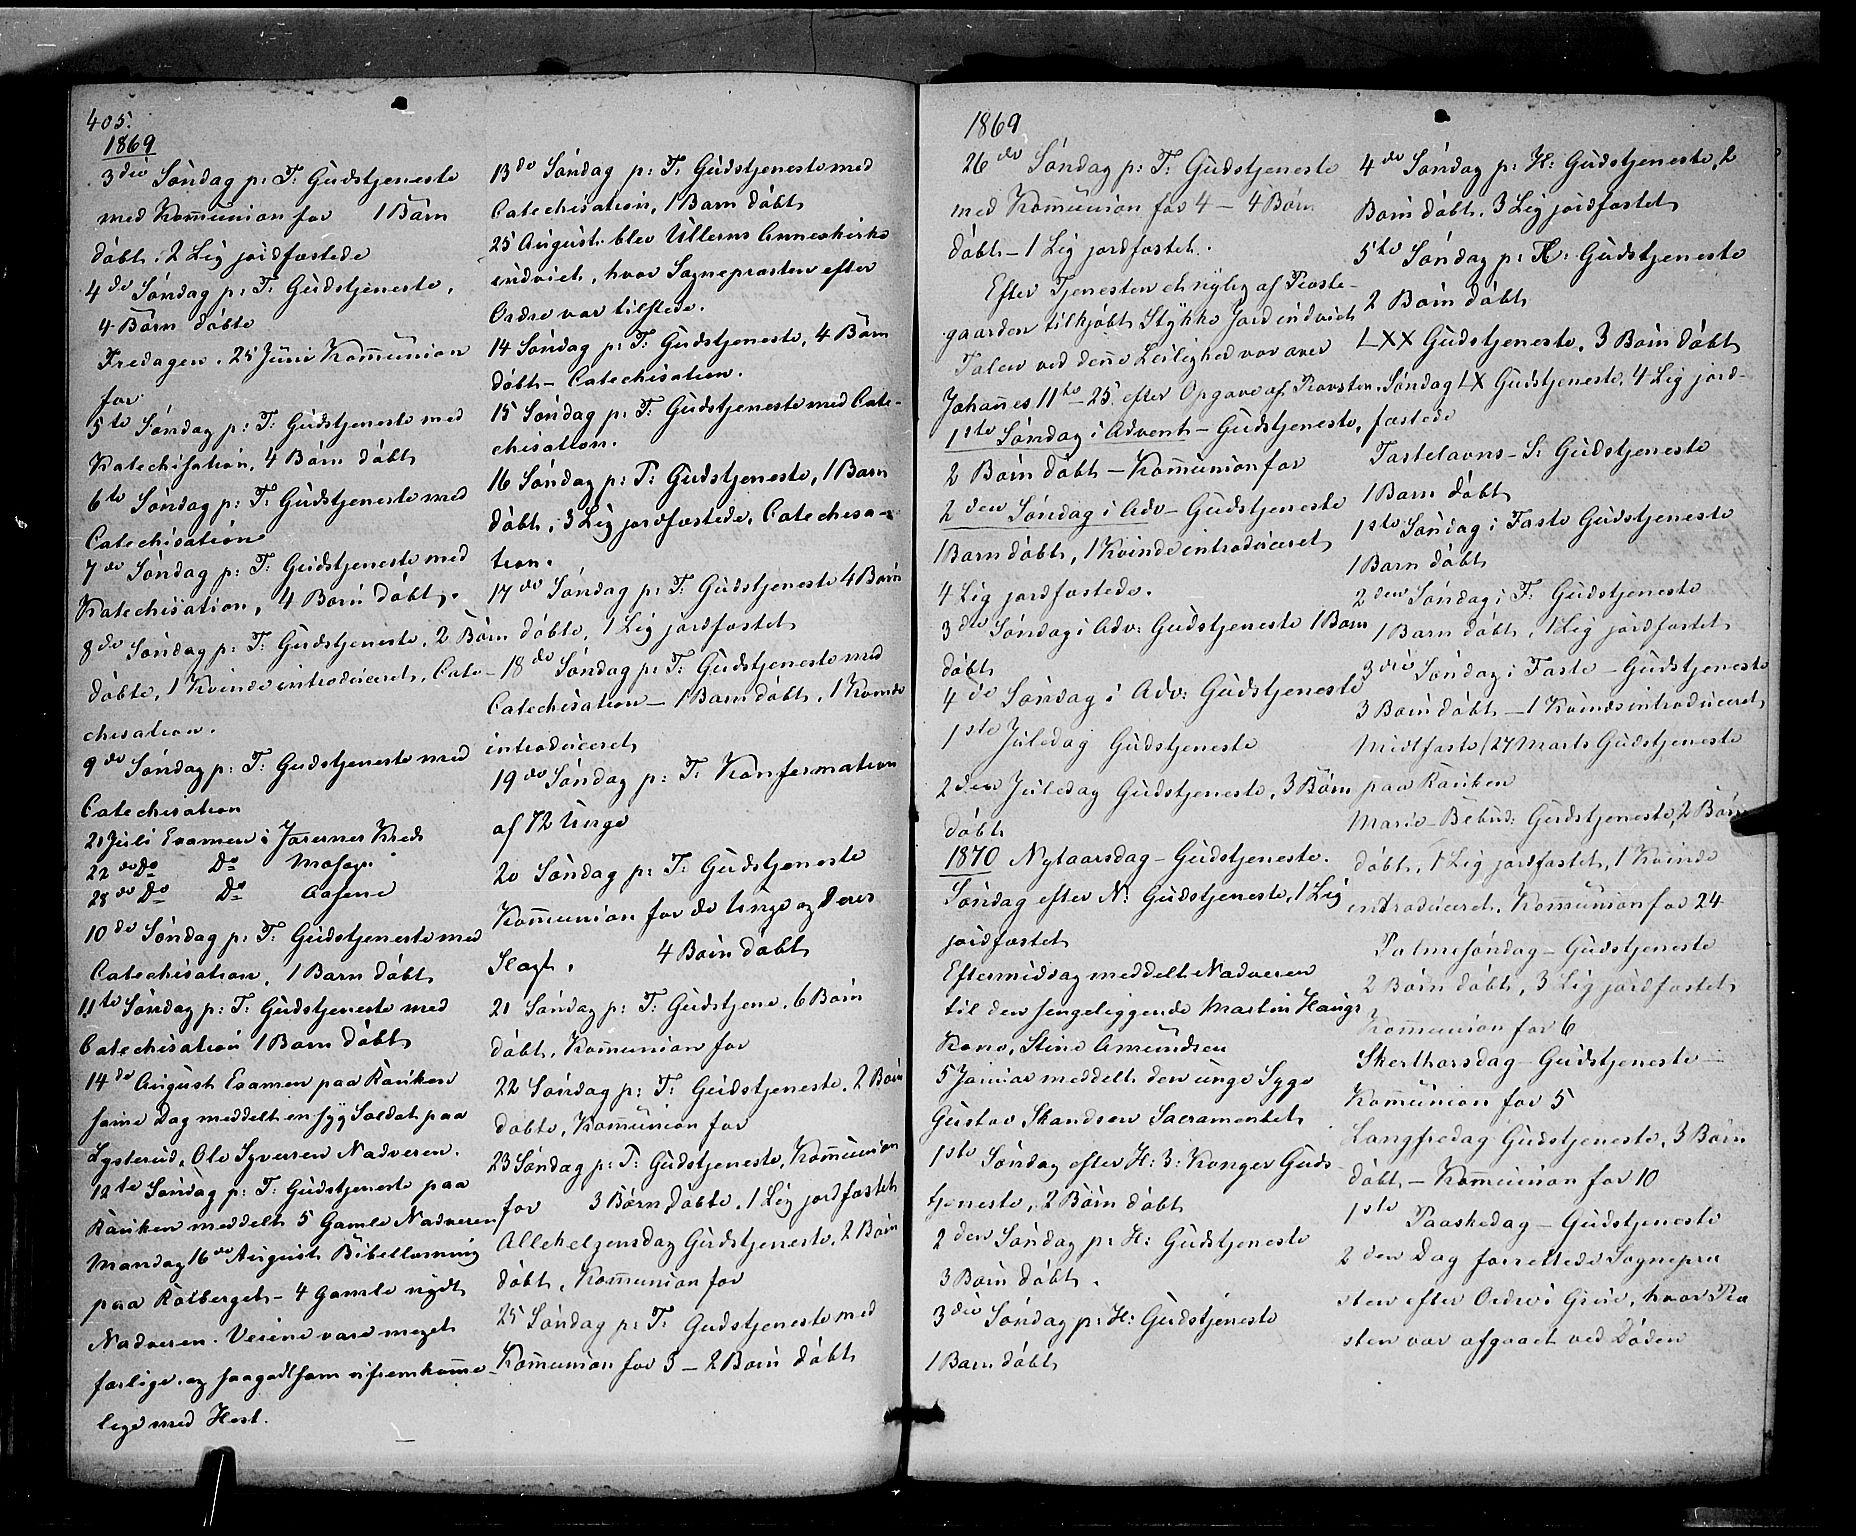 405.
1869
3die Søndag p: T: Gudstjeneste
med Kommunion for 1 Barn
døbt. 2 Lig jordfæstede
4de Søndag p: T: Gudstjeneste,
4 Børn døbte
Fredagen. 25 Juni Kommunion
for
5te Søndag p: T: Gudstjeneste med
Katechisation, 4 Børn døbt
6te Søndag p: T: Gudstjeneste med
Catechisation
7de Søndag p: T: Gudstjeneste med
Katechisation, 4 Børn døbt.
8de Søndag p: T: Gudstjeneste, 2 Børn
døbte, 1 Kvinde introduceret, Cate-
chisation.
9de Søndag p: T: Gudstjeneste med
Catechisation
21 Juli Examen i Kreds
22de Do Do
28de Do Do
10de Søndag p: T: Gudstjeneste med
Catechisation, 1 Barn døbt
11te Søndag p: T: Gudstjeneste med
Catechisation 1 Barn døbt
14de August Examen paa Røiken
samme Dag meddelt en syg Soldat paa
Lysterud, Ole Syversen Nadveren.
12te Søndag p: T: Gudstjeneste paa
Røiken meddelt 5 Gamle Nadveren
Mandag 16de August Bibellæsning
paa Kolberget - 4 Gamle nydt
Nadveren. Veiene vare meget
farlige og saagodtsom ufremkomme-
lige med Hest.
13de Søndag p: T: Gudstjeneste med
Catechisation, 1 Barn døbt
25 August blev Ullerns Annexkirke
indviet, hvor Sognepræsten efter
Ordre var tilstede.
14 Søndag p: T: Gudstjeneste, 4 Børn
døbt - Catechisation.
15 Søndag p: T: Gudstjeneste med Cate-
chisation.
16 Søndag p: T: Gudstjeneste, 1 Barn
døbt, 3 Lig jordfæstede, Catechisa-
tion.
17de Søndag p: T: Gudstjeneste 4 Børn
døbte, 1 Lig jordfæstet
18de Søndag p: T: Gudstjeneste med
Catechisation - 1 Barn døbt, 1 Kvinde
introduceret
19de Søndag p: T: Konfirmation
af 72 Unge
20 Søndag p: T: Gudstjeneste
Kommunion for de Unge og deres
Slægt. 4 Børn døbt
21 Søndag p: T: Gudstjene, 6 Børn
døbt, Kommunion for
22 Søndag p: T: Gudstjeneste. 2 Børn
døbte, Kommunion for
23 Søndag p: T: Gudstjeneste, Kommunion
for 3 Børn døbte, 1 Lig jordfæstet
Allehelgensdag Gudstjeneste. 2 Børn
døbt, Kommunion for
25 Søndag p: T: Gudstjeneste med
Kommunion for 5 - 2 Børn døbt
1869
26de Søndag p: T: Gudstjeneste
med Kommunion for 4 - 4 Børn
døbt - 1 Lig jordfæstet.
Efter Tjenesten et nylig af Præste-
gaarden tilkjøbt Stykke Jord indviet
Talen ved denne Leilighed var over
Johannes 11te - 25. efter Opgave af Provsten.
1ste Søndag i Advent - Gudstjeneste,
2 Børn døbt - Kommunion for
2den Søndag i Adv - Gudstjeneste
1 Barn døbt, 1 Kvinde introduceret
4 Lig jordfæstede.
3die Søndag i Adv: Gudstjeneste 1 Barn
døbt
4de Søndag i Adv: Gudstjeneste
1ste Juledag Gudstjeneste
2den Juledag Gudstjeneste, 3 Børn
døbt
1870 Nytaarsdag - Gudstjeneste.
Søndag efter N: Gudstjeneste, 1 Lig
jordfæstet
Eftermiddag meddelt Nadveren
til den sengeliggende Martin Haugs
Kone, Stine Amundsen
5 Januar meddelt den unge Syge
Gustav Skandsen Sacramentet
1ste Søndag efter H: 3: Konger Guds-
tjeneste, 2 Børn døbt
2den Søndag p: H: Gudstjeneste
3 Børn døbt.
3die Søndag p: H: Gudstjeneste
1 Barn døbt
4de Søndag p: H: Gudstjeneste, 2
Børn døbt. 3 Lig jordfæstet
5te Søndag p: H: Gudstjeneste
2 Børn døbt
LXX Gudstjeneste, 3 Børn døbt
Søndag LX Gudstjeneste. 4 Lig jord-
fæstede
Fastelavns - S: Gudstjeneste
1 Barn døbt
1ste Søndag i Faste Gudstjeneste
1 Barn døbt
2den Søndag i F: Gudstjeneste
1 Barn døbt, 1 Lig jordfæstet
3die Søndag i Faste - Gudstjeneste
3 Børn døbt - 1 Kvinde introduceret
Midtfaste / 27 Marts Gudstjeneste
paa Røiken
Marie-Bebud: Gudstjeneste, 2 Børn
døbt, 1 Lig jordfæstet, 1 Kvinde
introduceret, Kommunion for 24
Palmesøndag - Gudstjeneste
2 Børn døbt, 3 Lig jordfæstet
Kommunion for 6
Skærthorsdag - Gudstjeneste
Kommunion for 5
Langfredag Gudstjeneste, 3 Børn
døbt - Kommunion for 10
1ste Paaskedag - Gudstjeneste
2den Dag forrettede Sognepræ
sten efter Ordre i Grue, hvor Præ
sten var afgaaet ved Døden